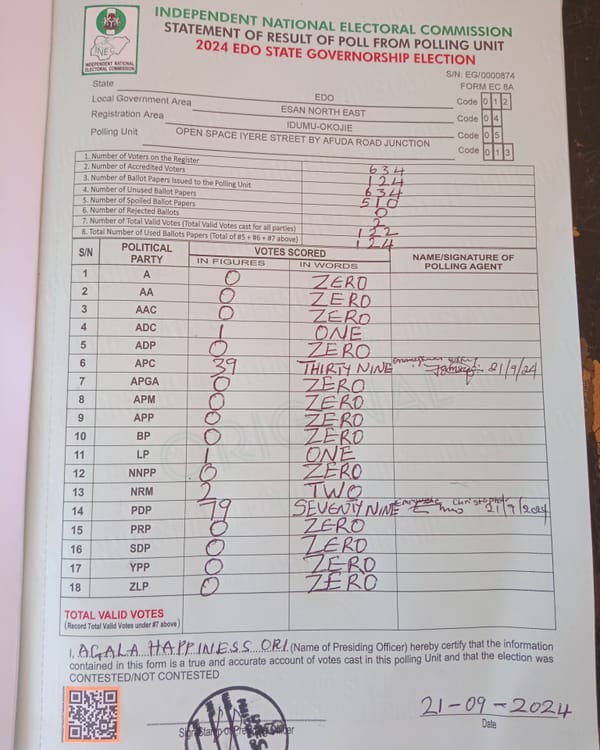 INDEPENDENT NATIONAL ELECTORAL COMMISSION
STATEMENT OF RESULT OF POLL FROM POLLING UNIT
2024 EDO STATE GOVERNORSHIP ELECTION
INEC
INDEPENDENT NATIONAL
ELECTORAL COMMISSION
S/N: EG/0000874
FORM EC 8A
State EDO Code 0 1 2
Local Government Area ESAN NORTH EAST Code 0 4
Registration Area IDUMU-OKOJIE Code 0 5
Polling Unit OPEN SPACE IYERE STREET BY AFUDA ROAD JUNCTION Code 0 1 3
1. Number of Voters on the Register 634
2. Number of Accredited Voters 124
3. Number of Ballot Papers Issued to the Polling Unit 634
4. Number of Unused Ballot Papers 510
5. Number of Spoiled Ballot Papers 0
6. Number of Rejected Ballots 2
7. Number of Total Valid Votes (Total Valid Votes cast for all parties) 122
8. Total Number of Used Ballots Papers (Total of #5 + #6 + #7 above) 124
S/N POLITICAL PARTY VOTES SCORED NAME/SIGNATURE OF POLLING AGENT
IN FIGURES IN WORDS
1 A 0 ZERO
2 AA 0 ZERO
3 AAC 0 ZERO
4 ADC 1 ONE
5 ADP 0 ZERO
6 APC 39 THIRTY NINE 21/9/24
7 APGA 0 ZERO
8 APM 0 ZERO
9 APP 0 ZERO
10 BP 0 ZERO
11 LP 1 ONE
12 NNPP 0 ZERO
13 NRM 2 TWO
14 PDP 79 SEVENTY NINE Christopher 21/9/2024
15 PRP 0 ZERO
16 SDP 0 ZERO
17 YPP 0 ZERO
18 ZLP 0 ZERO
ORIGINAL
TOTAL VALID VOTES
(Record Total Valid Votes under #7 above)
I, AGALA HAPPINESS ORI (Name of Presiding Officer) hereby certify that the information
contained in this form is a true and accurate account of votes cast in this polling Unit and that the election was
CONTESTED/NOT CONTESTED
21-09-2024
Sign/Stamp of Presiding Officer Date